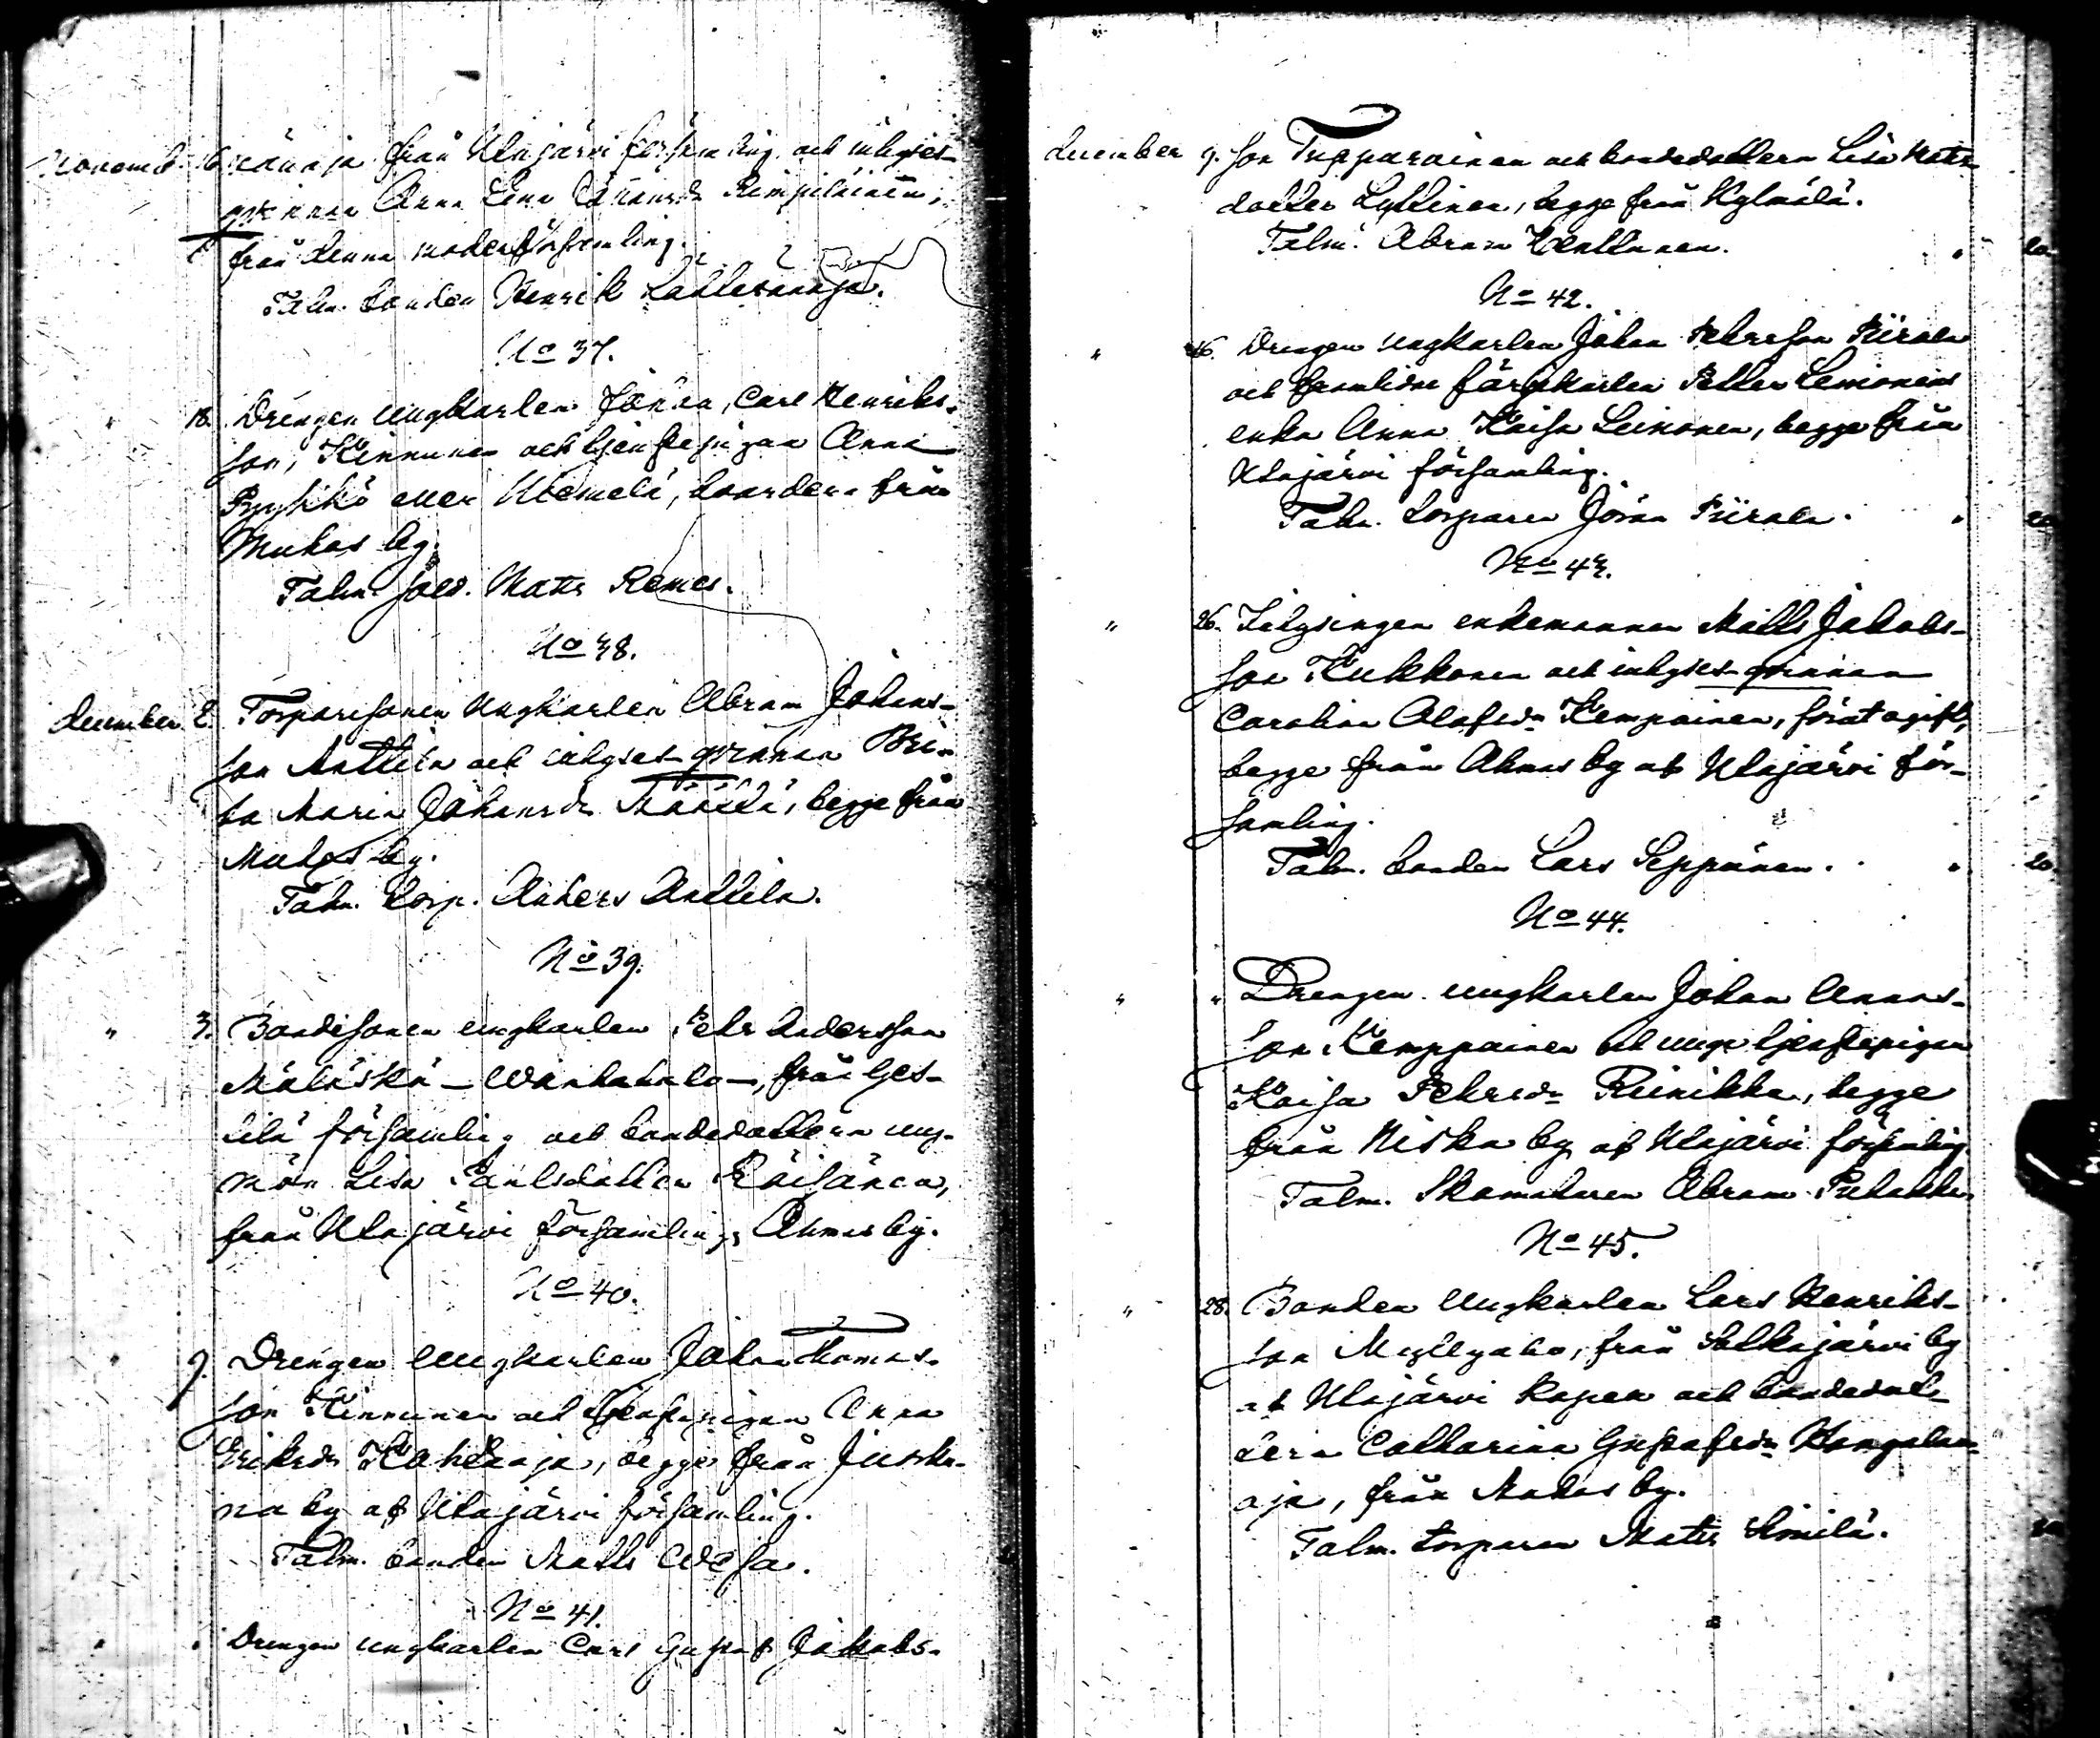 Novemb. 16 from Uleajärvi församling och inhyses-
qvinnan Anna Lena Rimpiläinen,
från denna moderförsamling.
Talm. bonden Henrik
No 37.
" 18. Drengen ungkarlen Johan, Carl Henriks-
son, Kinnunen och tjenstepigan Anna
Pyykkö eller Niemelä, bonders från
Muhos by.
Talm. sold. Matts Remes.
No 38.
December 2. Torparesonen ungkarlen Abram Johans-
son Anttila och inhyses-qvinnan Bri-
ta Maria Johansdr begge från
Muhos by.
Talm. torp. Anders Anttila.
No 39.
" 3. Bondesonen ungkarlen Pehr Andersson
Mäläskä - Wanhatalo -, från Ges-
tilä församling och bondedottern ung-
mön Lisa Paulsdotter Räisänen,
från Uleajärvi församling, Ahmas by.
No 40.
" 9. Drengen ungkarlen Johan Thomas-
son Kinnunen och tjenstepigan Anna
Eriksdr begge från Jusku-
na by af Utajärvi församling.
Talm. bonden Matts Wesa.
No 41.
" " Drengen ungkarlen Carl Gustaf Jakobs-
December 9. son Tupparainen och bondedottern Lisa Matts-
dotter Lyttinen, begge från Kylmälä.
Talm. Abram Huttunen. " 20
No 42.
" 16. Drengen ungkarlen Johan Pehrsson Piirala
och framlidne färjkarlen Petter Leinonens
enka Anna Kaisa Leinonen, begge från
Utajärvi församling.
Talm. torparen Jöran Piirala. " 20
No 43.
" 26. Inhysingen enkemannen Matts Jakobs-
son Kukkonen och inhyses-qvinnan
Carolina Olofsdr Kempainen, förut ogift,
begge från Ahmas by af Utajärvi för-
samling.
Talm. bonden Lars Seppänen. " 20
No 44.
" " Drengen ungkarlen Johan Annans-
son Kemppainen och unga tjenstepigan
Kaisa Pehrsdr Reinikka, begge
från Niska by af Utajärvi församling
Talm. Skomakaren Abram
No 45.
" 28. Bonden ungkarlen Lars Henriks-
son Myllyaho, från Salkajärvi by
af Utajärvi Kapell och bondedot-
tern Catharina Gustafsdr Kangalan-
oja, från Muhos by.
Talm. torparen Matts Similä. 20